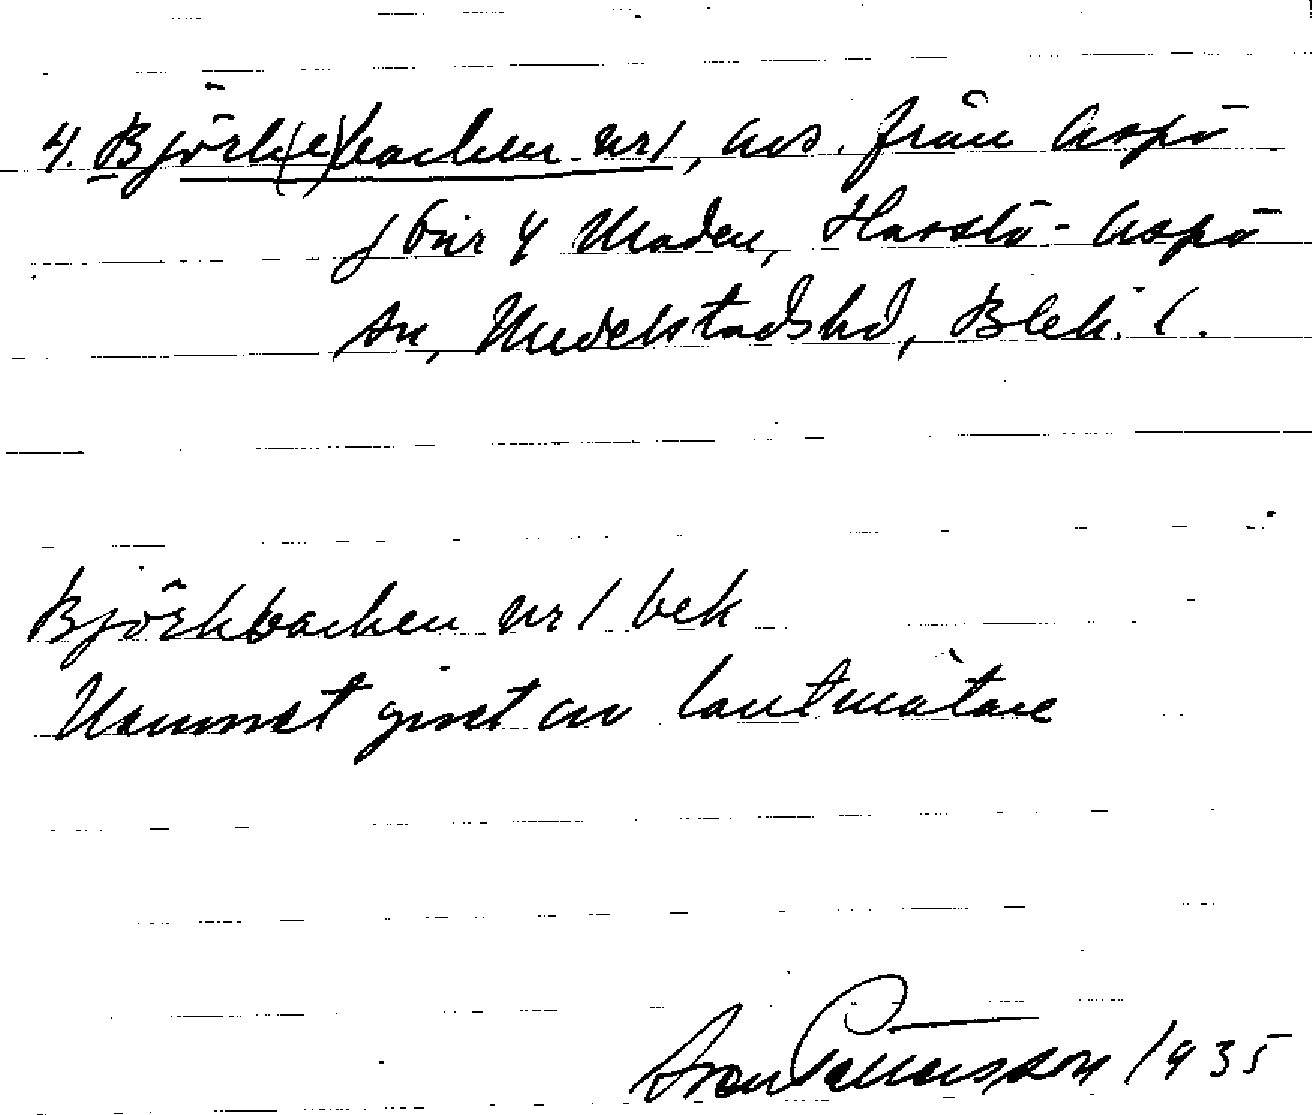 4. Björk(e)backen nr 1, avs. från Aspö
f Övr 4 Maden, Hasslö-Aspö
sn, Medelstads hd, Blek. l.
Björkbacken nr 1 bek
Namnet givet av lantmätare
Sven Pettersson 1935